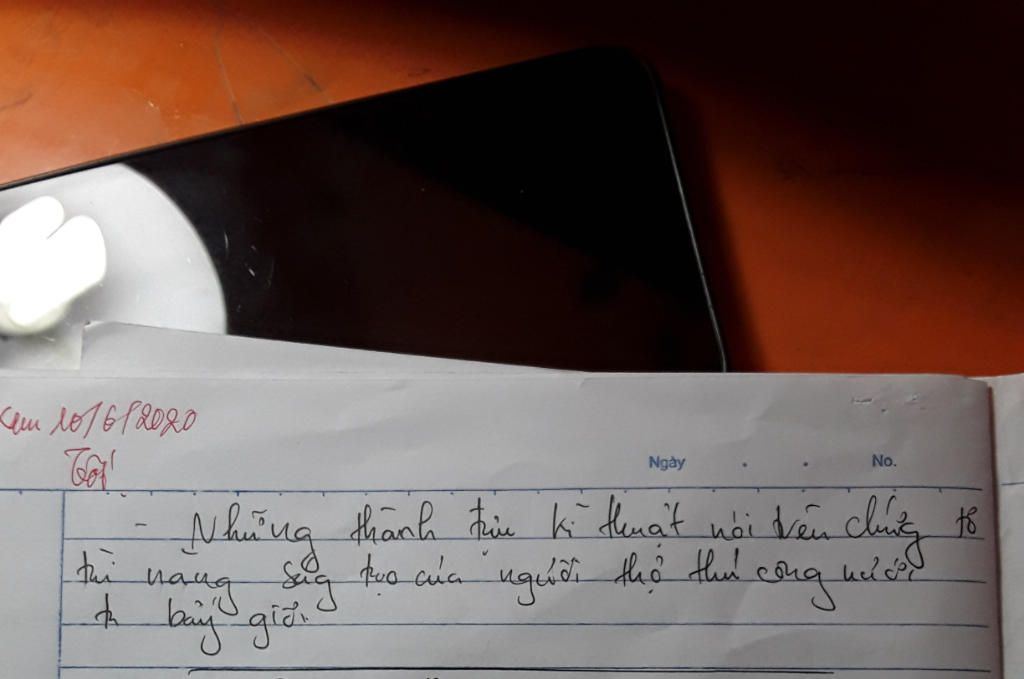 Xem 10/6/2020
Tốt
Ngày . . No.
- Những thành tựu kĩ thuật nói trên chứng tỏ
tài năng sáng tạo của người thợ thủ công nước
ta bấy giờ.